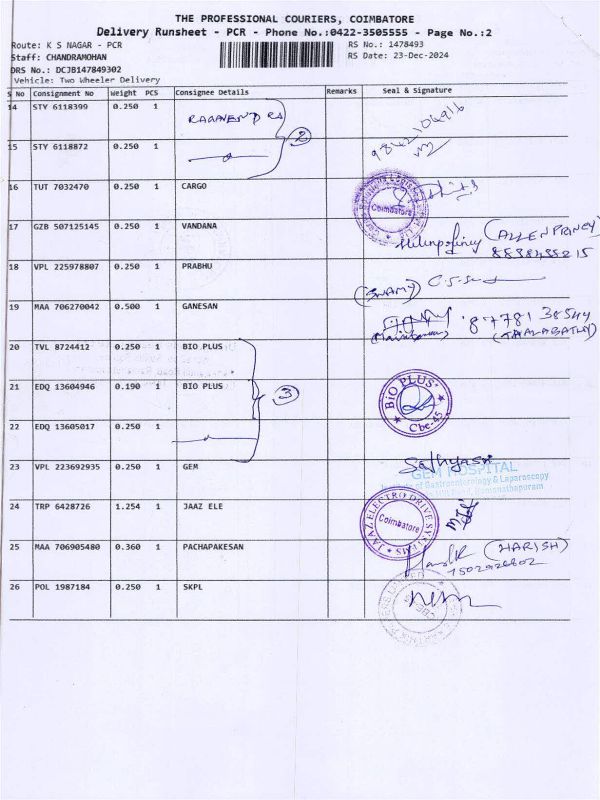 THE PROFESSIONAL COURIERS, COIMBATORE
Delivery Runsheet - PCR - Phone No.:0422-3505555 - Page No.:2
Route: K S NAGAR - PCR RS No.: 1478493
Staff: CHANDRAMOHAN RS Date: 23-Dec-2024
DRS No.: DCJB147849302
Vehicle: Two Wheeler Delivery
S No Consignment No Weight PCS Consignee Details Remarks Seal & Signature
14 STY 6118399 0.250 1
2
15 STY 6118872 0.250 1
16 TUT 7032470 0.250 1 CARGO Coimbatore
17 GZB 507125145 0.250 1 VANDANA (ALLEN PRINCY)
18 VPL 225978807 0.250 1 PRABHU (SWAMY)
19 MAA 706270042 0.500 1 GANESAN 87781 38544
20 TVL 8724412 0.250 1 BIO PLUS
21 EDQ 13604946 0.190 1 BIO PLUS 3 BIO PLUS Cbe-45
22 EDQ 13605017 0.250 1
23 VPL 223692935 0.250 1 GEM Sathyasri
GEM HOSPITAL
Institute of Gastroenterology & Laparoscopy
Ramanathapuram
24 TRP 6428726 1.254 1 JAAZ ELE JAAZ ELECTRO DRIVE SYSTEMS Coimbatore
25 MAA 706905480 0.360 1 PACHAPAKESAN (HARISH)
26 POL 1987184 0.250 1 SKPL